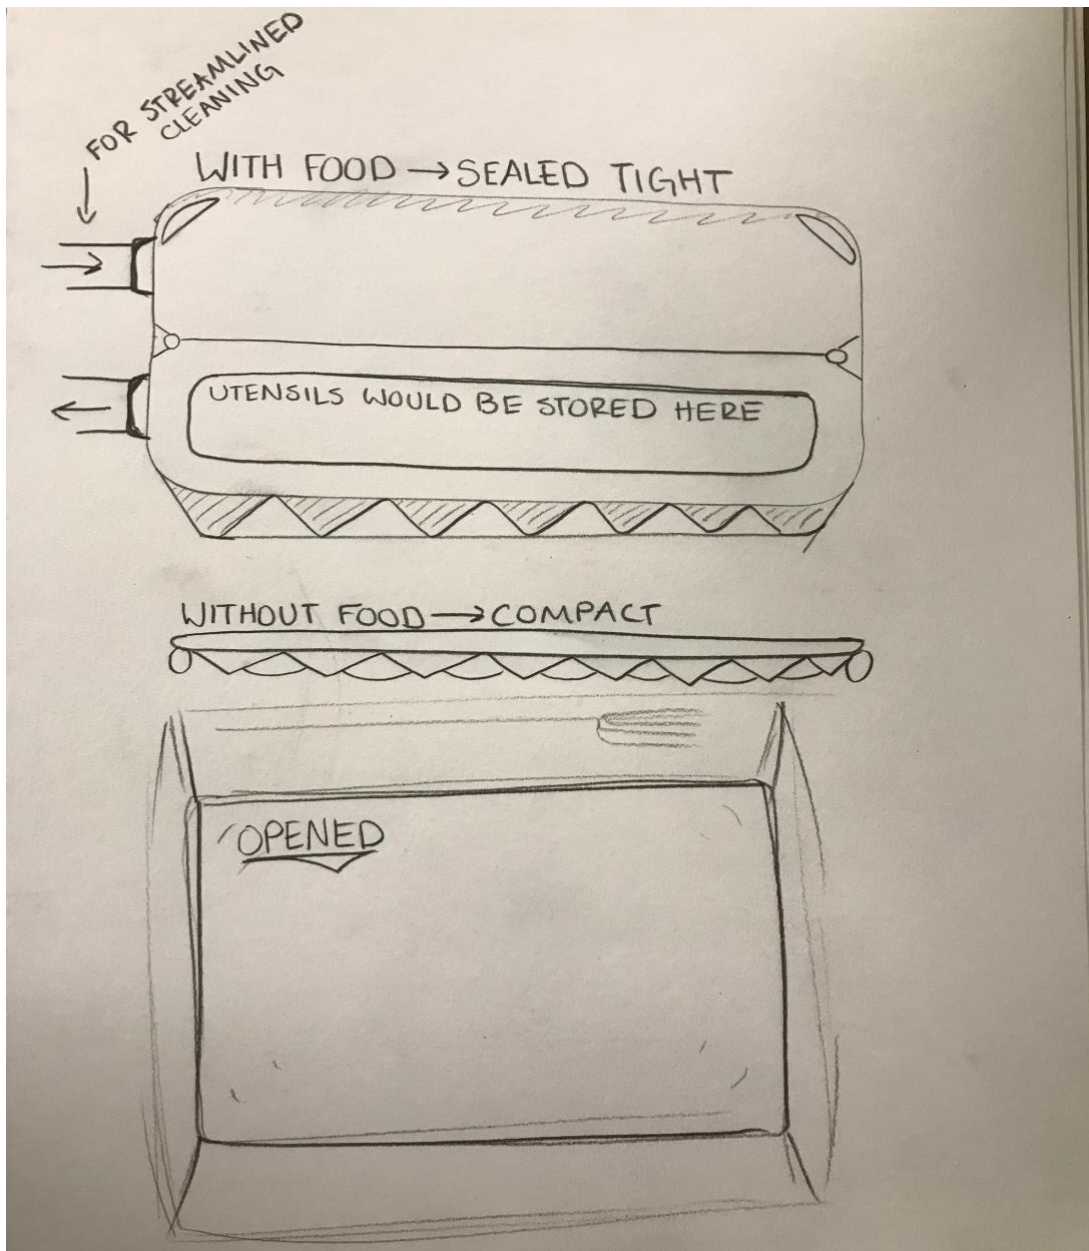 FOR STREAMLINED
CLEANING
WITH FOOD → SEALED TIGHT
UTENSILS WOULD BE STORED HERE
WITHOUT FOOD → COMPACT
OPENED